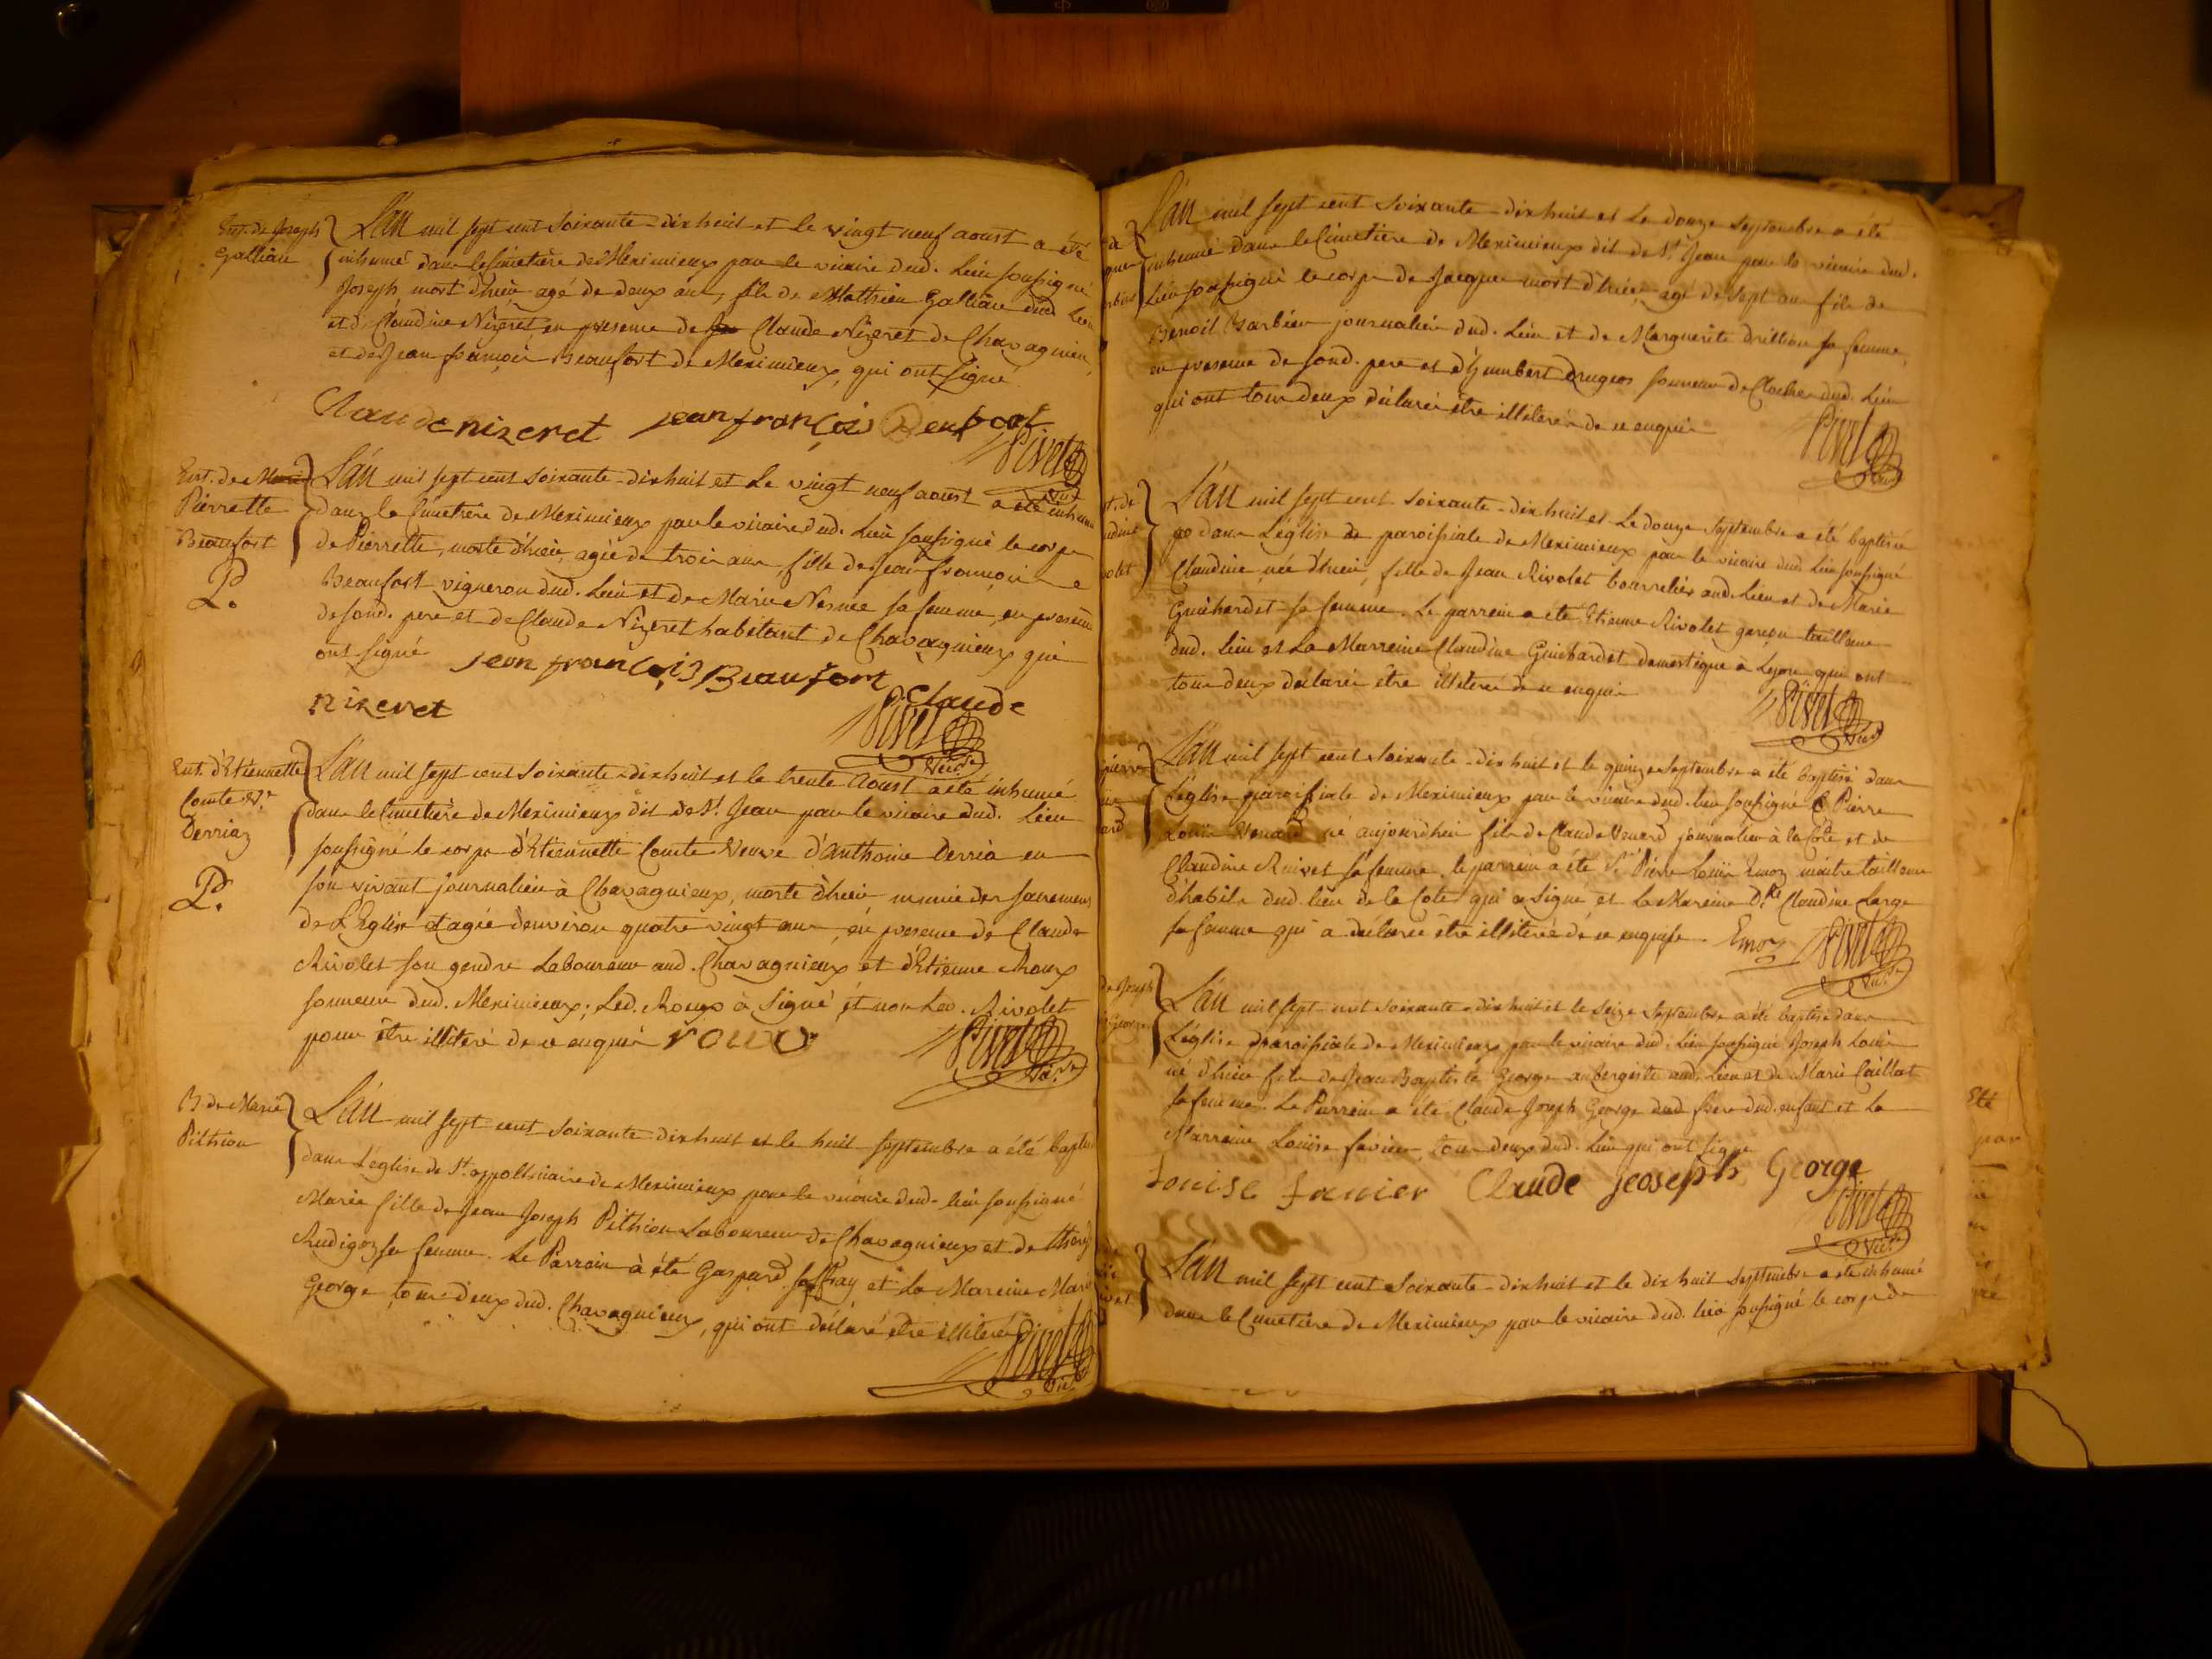 Ent. de Joseph
Gallian
L'an mil sept cent soixante-dix huit et le vingt neuf aoust a été
inhumé dans le Cimetière de Meximieux par le vicaire dud. Lieu soussigné
Joseph mort d'hier agé de deux ans, fils de Mathieu Gallian dud Lieu
et de Claudine Nizeret, en presence de Claude Nizeret de Chavagnieu
et de Jean françois Beaufort de Meximieux, qui ont signé
Claude nizeret jean françois Beufort
Pivet
Vic.re
Ent. de
Pierrette
Beaufort
P.
L'an mil sept cent soixante-dix huit et le vingt neuf aoust a été inhumé
dans le Cimetière de Meximieux par le vicaire dud. Lieu soussigné le corps
de Pierrette, morte d'hier, agée de trois ans, fille de Jean françois
Beaufort vigneron dud. Lieu et de Marie Nesme sa femme, en presence
de sond. pere et de Claude Nizeret habitant de Chavagnieux qui
ont signé jean françois Beaufort
Claude
nizeret
Pivet
Vic.re
Ent. d'Etiennette
Comte V.e
Derriaz
P.
L'an mil sept cent soixante-dix huit et le trente Aoust a été inhumé
dans le Cimetière de Meximieux dit de St. Jean par le vicaire dud. Lieu
soussigné le corps d'Etiennette Comte Veuve d'Anthoine Derria en
son vivant journalier à Chavagnieux, morte d'hier, munie des sacremens
de L'Eglise et agée d'environ quatre vingt ans, en presence de Claude
Rivolet son gendre Laboureur aud. Chavagnieux et d'Etienne Roux
sonneur dud. Meximieux; Led. Roux a signé et non Led. Rivolet
pour être illiteré de ce enquis roux
Pivet
Vic.re
B. de Marie
Pithion
L'an mil sept cent soixante-dix huit et le huit septembre a été baptisé
dans L'église de St. appollinaire de Meximieux par le vicaire dud. lieu soussigné
Marie fille de Jean Joseph Pithion Laboureur de Chavagnieux et de
Rudigoz sa femme. Le Parrain à été Gaspard Joffray et La Mareine Marie
George, tous deux dud. Chavagnieux, qui ont déclaré être illiteré
Pivet
Vic.re
L'an mil sept cent soixante-dix huit et le douze septembre a été
inhumé dans le Cimetière de Meximieux dit de St. Jean par le vicaire dud.
Lieu soussigné le corps de Jacque mort d'hier, agé de sept ans fils de
Benoit Barbier journalier dud. Lieu et de Marguerite Drillion sa femme,
en presence de sond. pere et d'Humbert Drugeos sonneur de Cloches dud. Lieu
qui ont tous deux déclaré être illiteré de ce enquis
Pivet
Vic.re
L'an mil sept cent soixante-dix huit et Le douze septembre a été baptisée
dans L'église paroissiale de Meximieux par le vicaire dud Lieu soussigné
Claudine née d'hier, fille de Jean Rivolet bourrelier aud. Lieu et de Marie
Guichardet sa femme. Le parrein a été Etienne Rivolet garçon tailleur
dud. Lieu et La Marreine Claudine Guichardet domestique à Lyon qui ont
tous deux déclaré être illiteré de ce enquis
Pivet
Vic.re
L'an mil sept cent soixante-dix huit et le quinze septembre a été baptisé dans
L'église paroissiale de Meximieux par le vicaire dud. lieu soussigné Pierre
Louis Venard né aujourd'hui fils de Claude Venard journalier à la Cote et de
Claudine Ruivet sa femme. le parrein a été Sr. Pierre Louis Emoz maitre tailleur
d'habits dud. lieu de la Cote qui a signé et La Mareine D.lle Claudine Large
sa femme qui a déclaré être illiterée de ce enquise. Emoz
Pivet
Vic.re
de Joseph
George
L'an mil sept cent soixante-dix huit et le seize septembre a été baptisé dans
L'église paroissiale de Meximieux par le vicaire dud. Lieu soussigné Joseph Louis
né d'hier fils de Jean Baptiste George aubergiste aud. Lieu et de Marie Caillat
sa femme. Le Parrein a été Claude Joseph George dud frere dud. enfant et La
Marreine Louise favier, tous deux dud. Lieu qui ont signé
Louise favier Claude jeoseph George
Pivet
Vic.re
L'an mil sept cent soixante-dix huit et le dix huit septembre a été inhumé
dans le Cimetière de Meximieux par le vicaire dud. lieu soussigné le corps de